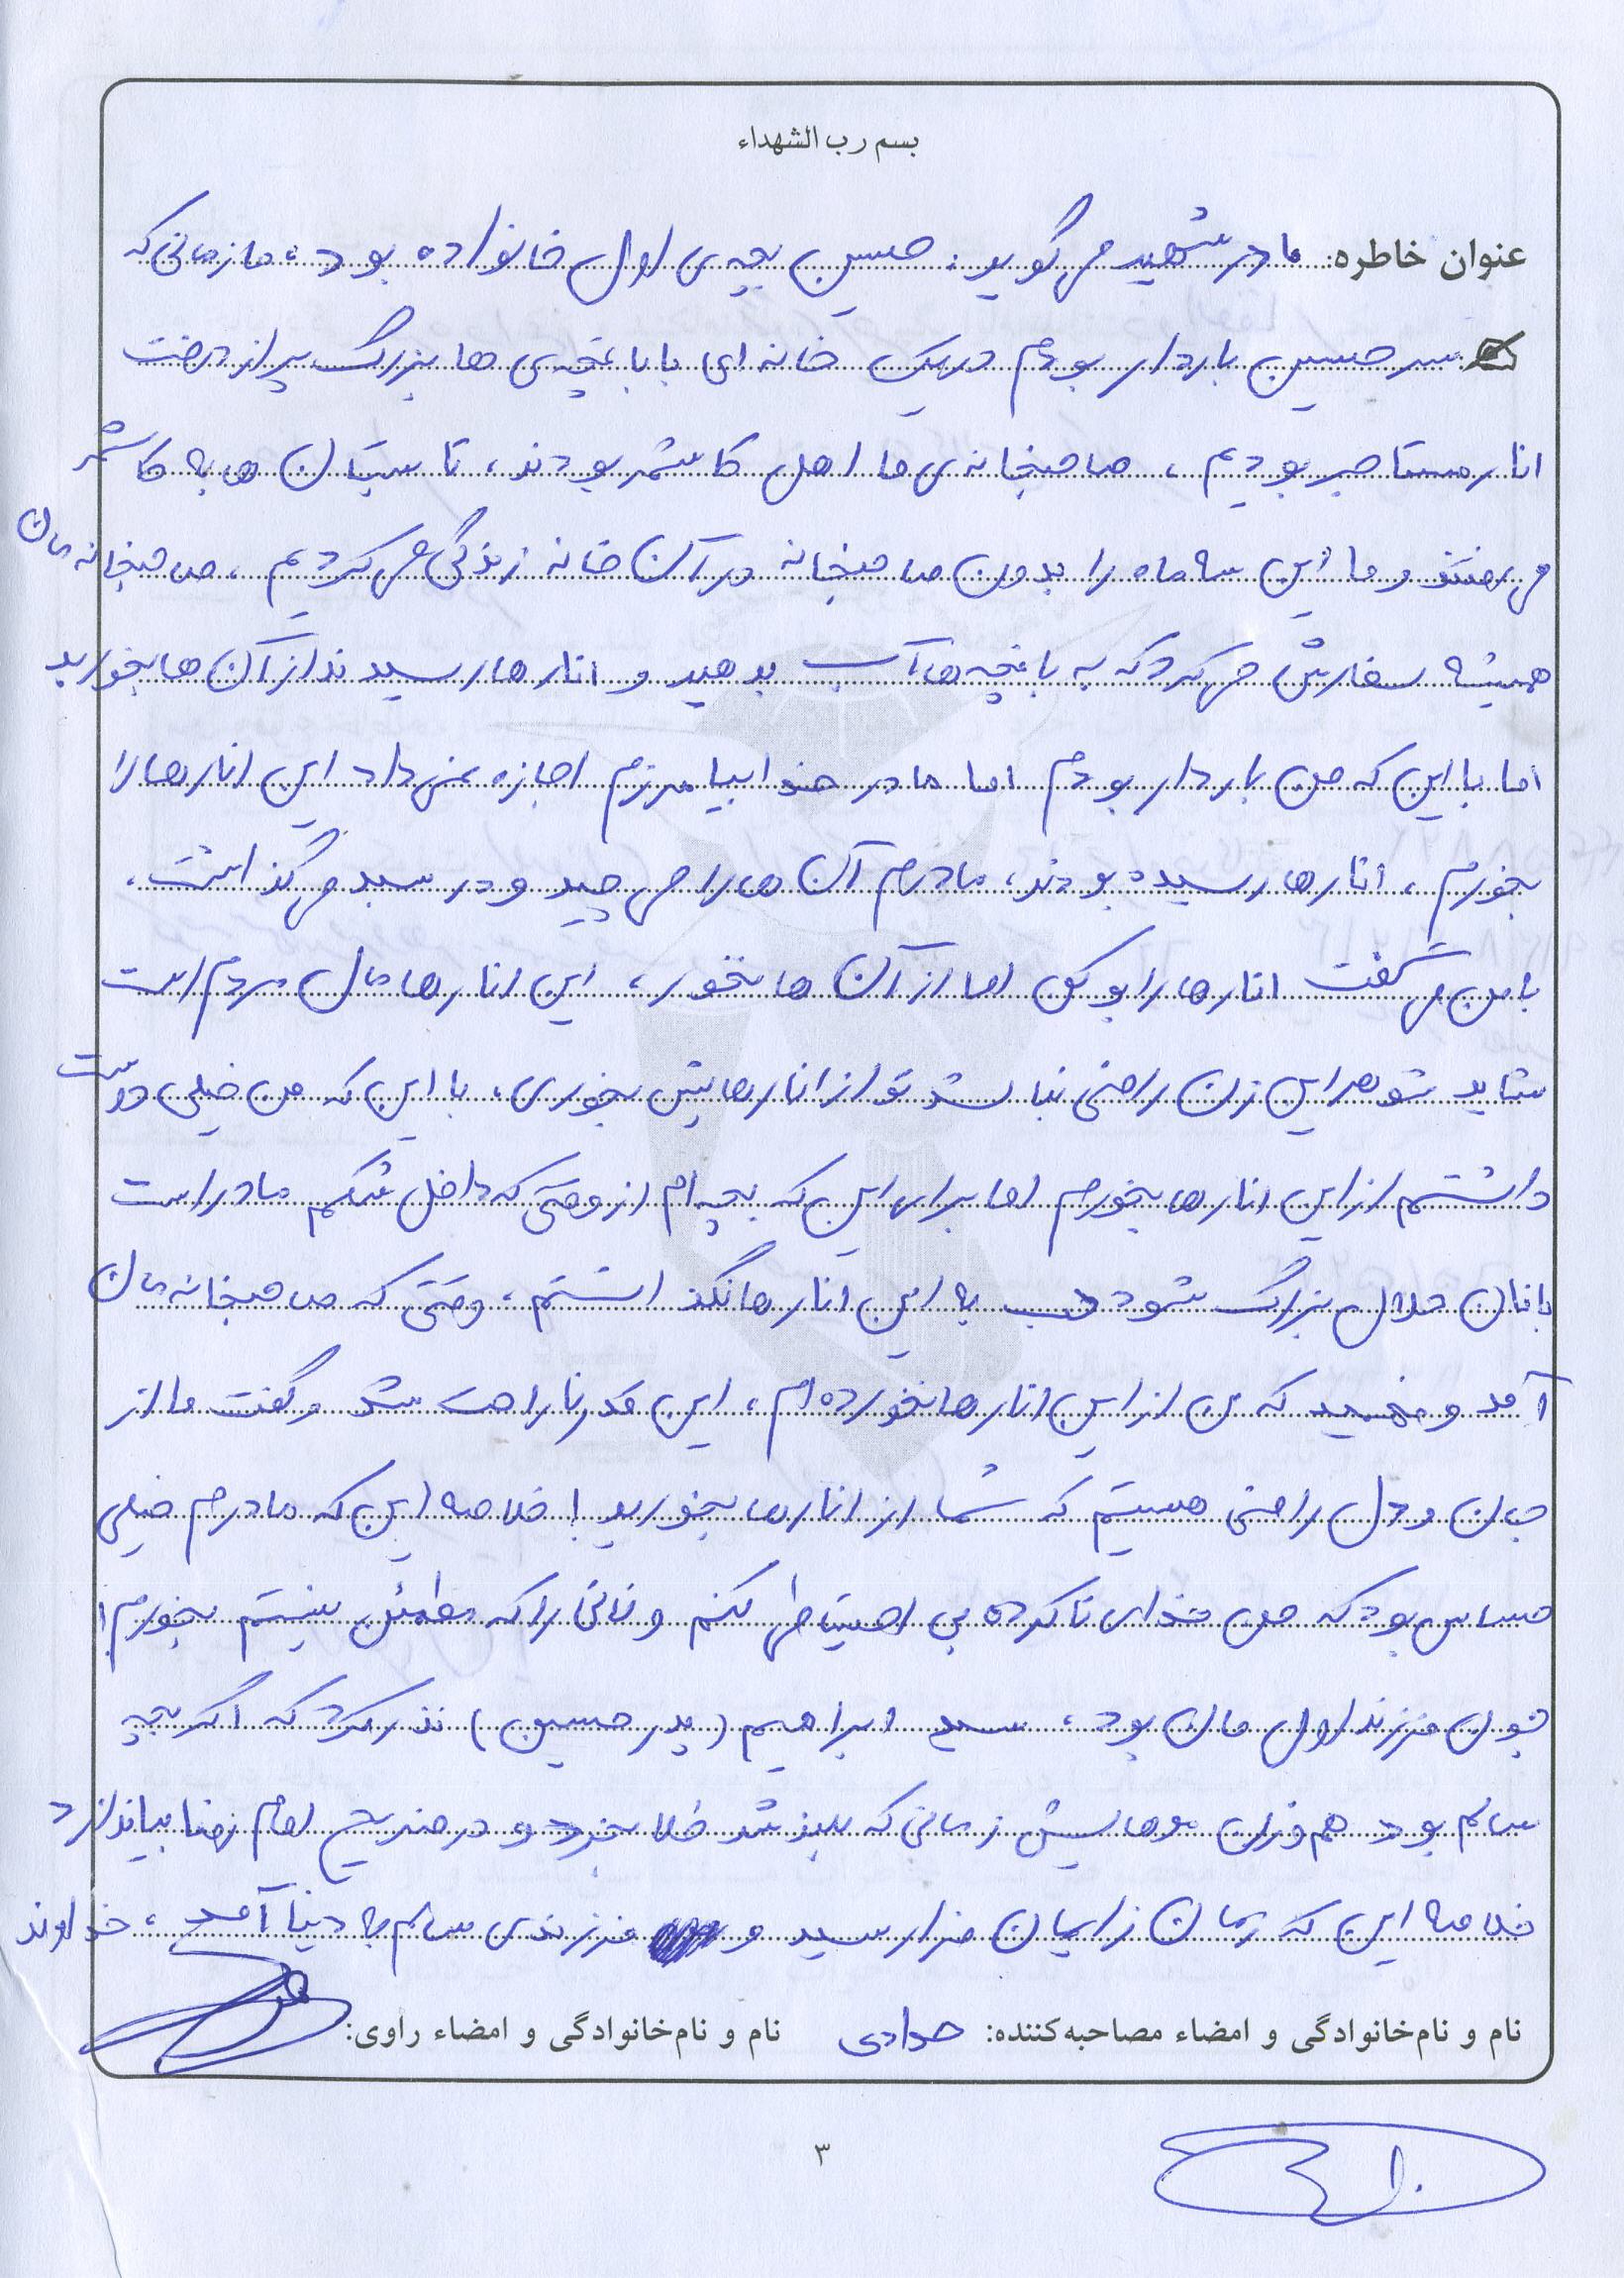 بسم رب الشهداء
عنوان خاطره: مادر شهید می گوید: حسین بچه ی اول خانواده بود، ما زمانی که
سر حسین باردار بودم در یک خانه ای با باغچه ی ها بزرگ پر از درخت
انار مستاجر بودیم، صاحبخانه ی ما اهل کاشمر بودند، تابستان ها به کاشمر
می رفتند و ما این سه ماه را بدون صاحبخانه در آن خانه زندگی می کردیم، صاحبخانه مان
همیشه سفارش می کرد که به باغچه ها آب بدهید و انارها رسیدند از آن ها بخورید
اما با این که من باردار بودم اما مادر خدا بیامرزم اجازه نمی داد این انارها را
بخورم، انارها رسیده بودند، مادرم آن ها را می چید و در سبد می گذاشت.
با من می گفت انارها را بو کن اما از آن ها نخور، این انارها مال مردم است
شاید شوهر این زن راضی نباشد تو از انارهایش بخوری، با این که من خیلی دوست
داشتم از این انارها بخورم اما برای این که بچه ام از وقتی که داخل شکم مادر است
با نان حلال بزرگ شود لب به این انارها نگذاشتم، وقتی که صاحبخانه مان
آمد و فهمید که من از این انارها نخورده ام، این قدر ناراحت شد و گفت ما از
جان و دل راضی هستیم که شما از انارها بخورید! خلاصه این که مادرم خیلی
حساس بود که من خدای نا کرده بی احتیاطی نکنم و نانی را که مطمئن نیستم بخورم!
چون فرزند اول مان بود، سید ابراهیم (پدر حسین) نذر کرد که اگر بچه
سالم بود هم وزن موهایش زمانی که بلند شد طلا بخرد و در ضریح امام رضا بیاندازد
خلاصه این که زمان زایمان فرا رسید و فرزندی سالم به دنیا آمد، خداوند
نام و نام‌خانوادگی و امضاء مصاحبه‌کننده: حدادی نام و نام‌خانوادگی و امضاء راوی:
۳